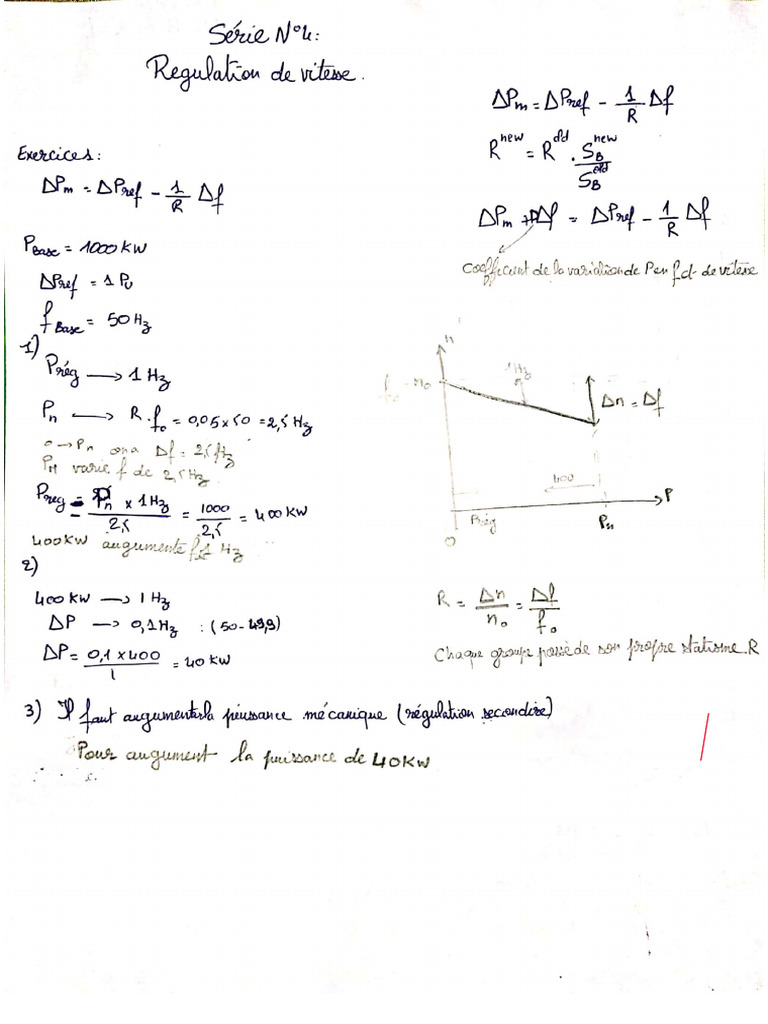 Série N°4:
Regulation de vitesse.
ΔPm = ΔPref - 1/R Δf
R^new = R^old . S_B^new / S_B^old
ΔPm + DΔf = ΔPref - 1/R Δf
Coefficient de la variation de P en fct de vitesse
Exercices:
ΔPm = ΔPref - 1/R Δf
P_Base = 1000 KW
ΔPref = 1 PU
f_Base = 50 Hz
1)
Prég → 1 Hz
Pn → R.f0 = 0,05 x 50 = 2,5 Hz
0 → Pn on a Δf = 2,5 Hz
PM varie f de 2,5 Hz
Preg = Pn x 1Hz / 2,5 = 1000 / 2,5 = 400 KW
400KW augumente f 1 Hz
n
f0
n0
1Hz
Δn = Δf
400
P
Prég
Pn
O
2)
400 KW → 1 Hz
ΔP → 0,1 Hz : (50 - 49,9)
ΔP = 0,1 x 400 / 1 = 40 KW
R = Δn / n0 = Δf / f0
Chaque groupe possède son propre statisme R
3) Il faut augumenter la puissance mécanique (régulation secondire)
Pour augument la puissance de 40KW